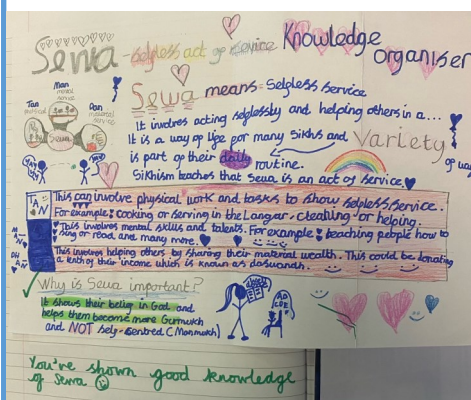 Sewa - selfless act of service Knowledge organiser
Man
mental service
Tan
Dan
material service
Sewa
Sewa means = Selfless service
It involves acting selflessly and helping others in a...
Variety
of way
It is a way of life for many Sikhs and
is part of their daily routine.
Sikhism teaches that Sewa is an act of service.
TAN
This can involve physical work and tasks to show selfless service.
For example: cooking or serving in the Langar - cleaning or helping.
MAN
This involves mental skills and talents. For example: teaching people how to
sing or read, and many more.
DHAN
This involves helping others by sharing their material wealth. This could be donating
a tenth of their income which is known as daswandh.
Why is Sewa important?
It shows their belief in God and
helps them become more Gurmukh
and NOT self-centred (Manmukh)
You've shown good knowledge
of Sewa